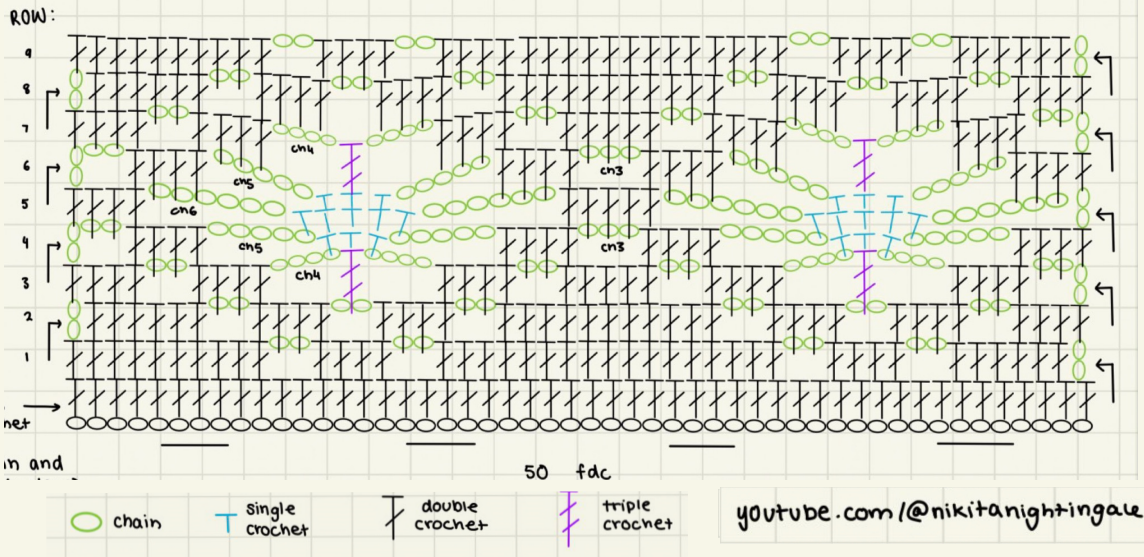 ROW:
9
8
7
ch4
6
ch5
ch3
5
ch6
4
ch5
ch3
ch4
3
2
1
50 fdc
chain
single
crochet
double
crochet
triple
crochet
youtube.com/@nikitanightingale